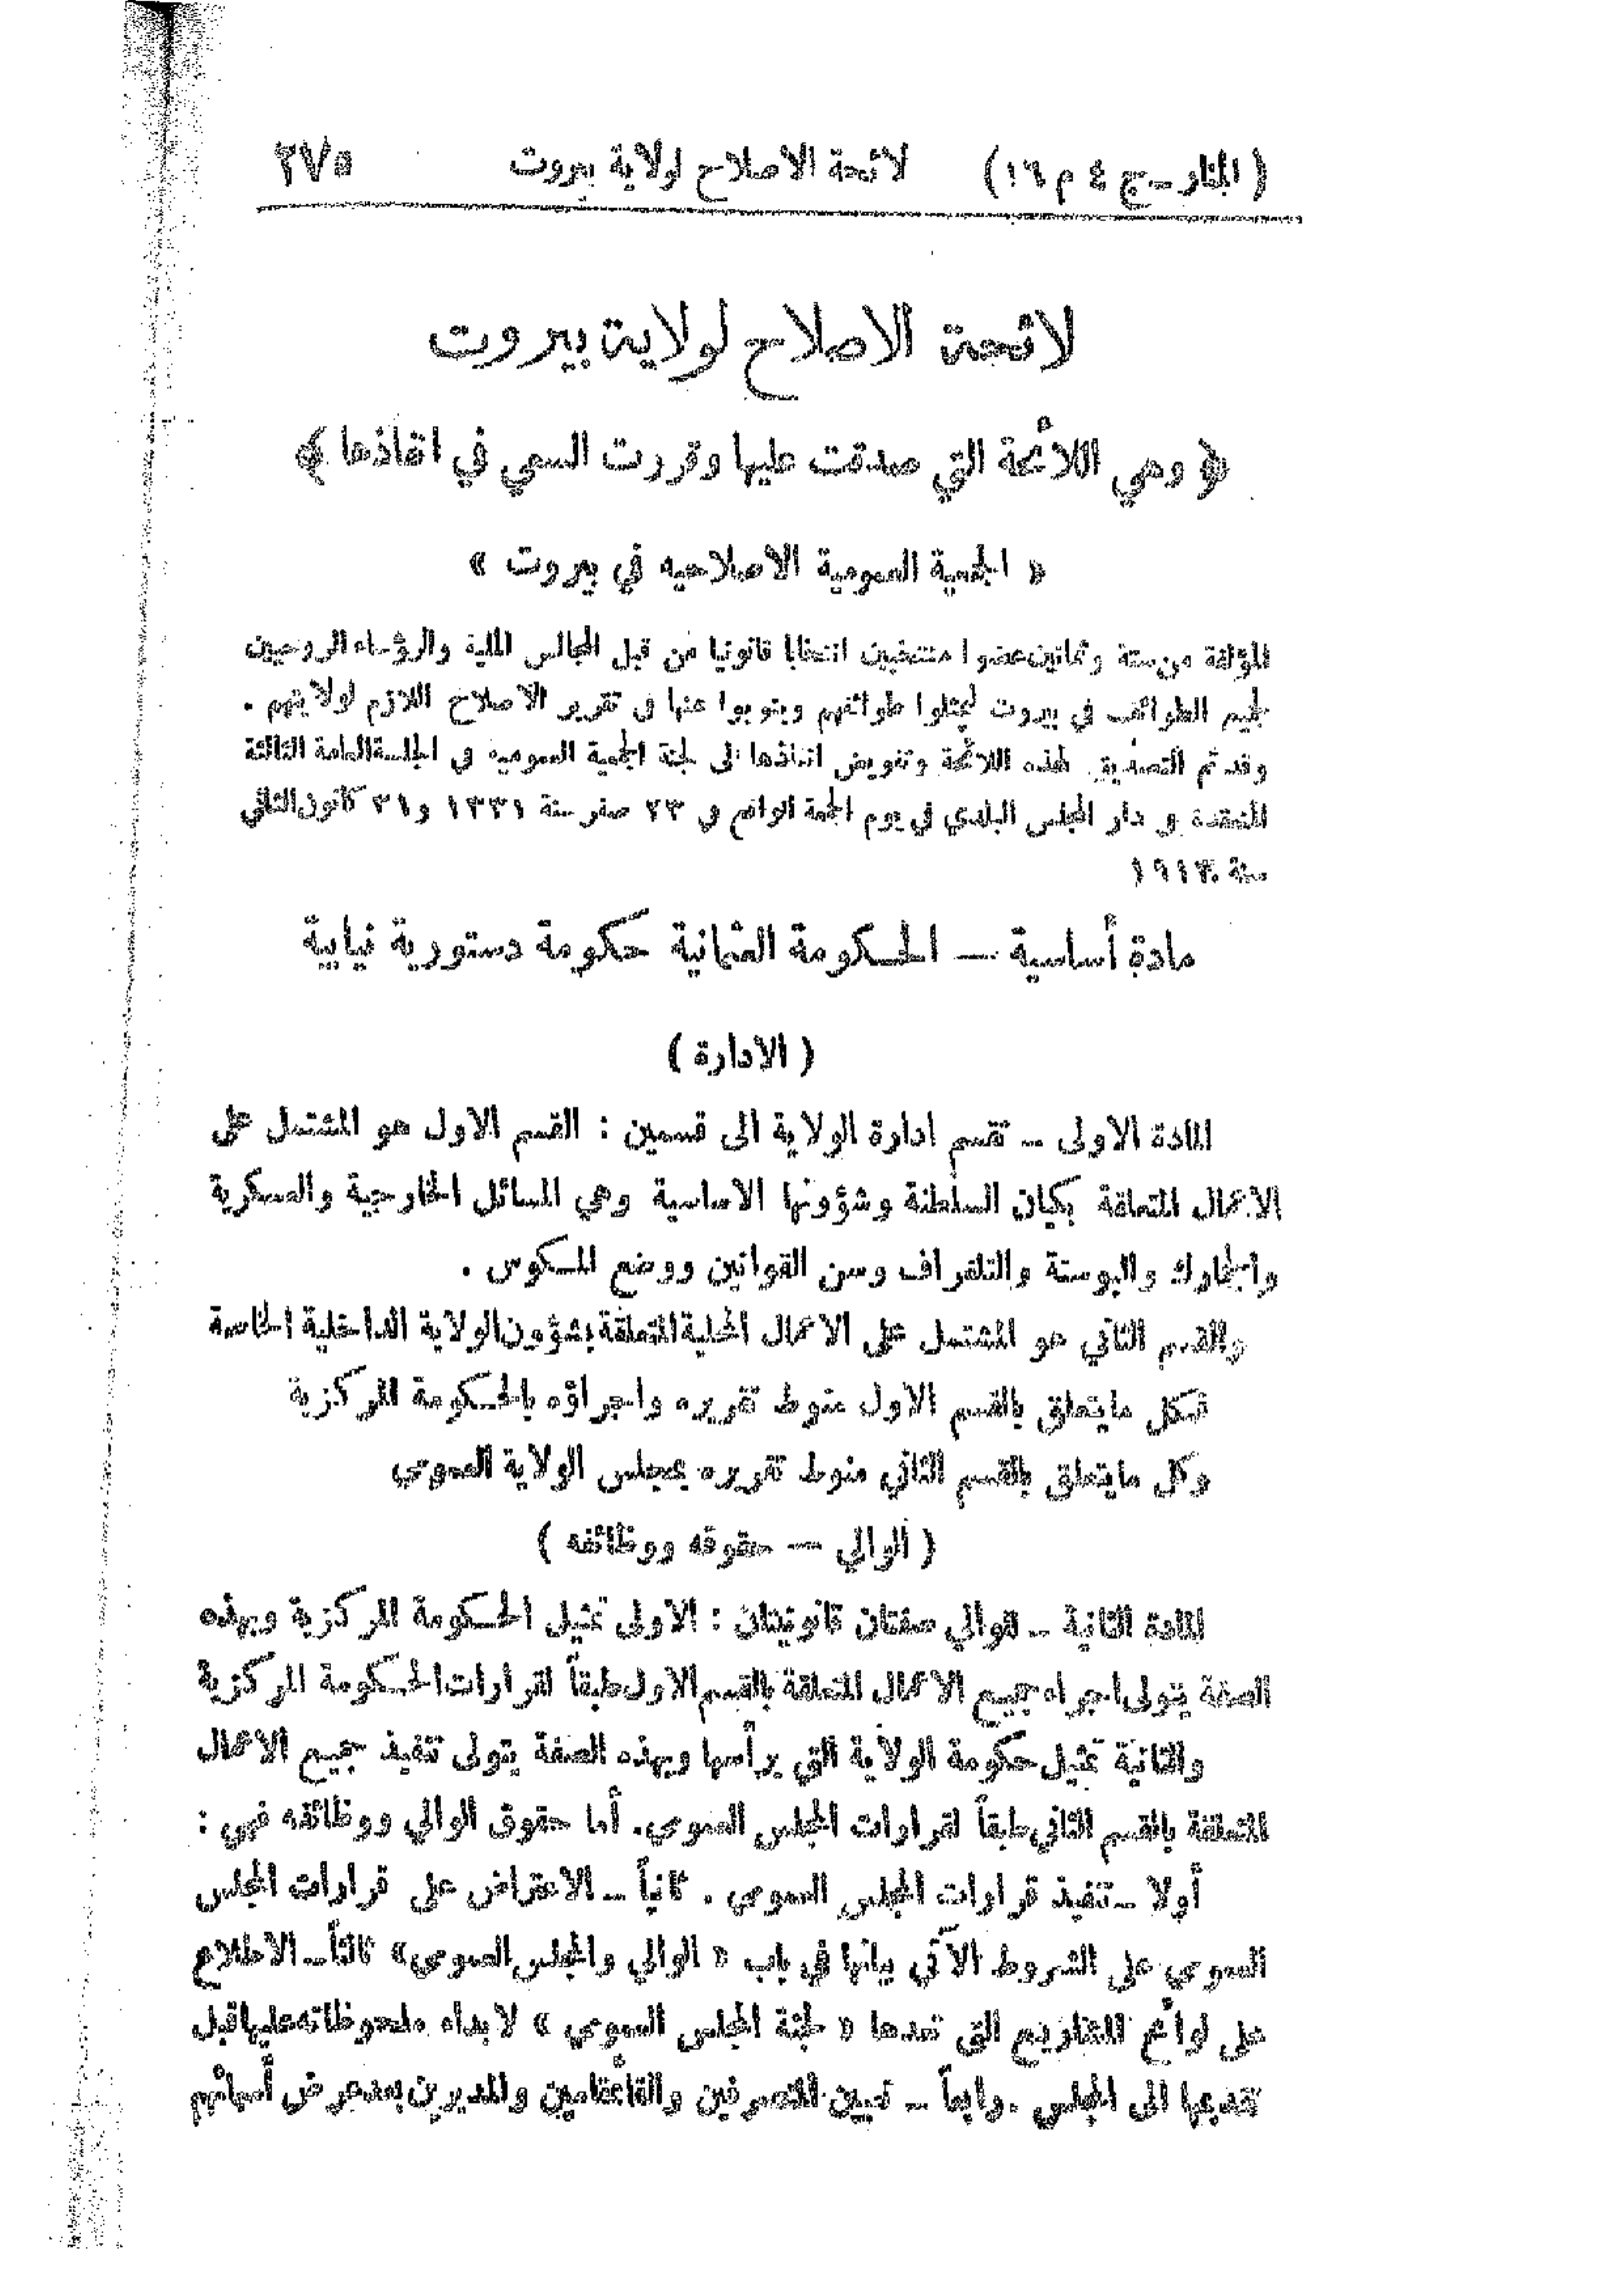 (المنار ـ ج ٤ م ١٦) لائحة الاصلاح لولاية بيروت ٢٧٥
لائحة الاصلاح لولاية بيروت
﴿ وهي اللائحة التي صدقت عليها وقررت السعي في انفاذها ﴾
« الجمعية العمومية الاصلاحيه في بيروت »
المؤلفة من ستة وثمانين عضوا منتخبين انتخابا قانونيا من قبل المجالس الملية والرؤساء الروحيين
لجميع الطوائف في بيروت ليمثلوا طوائفهم وينوبوا عنها في تقرير الاصلاح اللازم لولايتهم .
وقد تم التصديق لهذه اللائحة وتفويض انفاذها الى لجنة الجمعية العمومية في الجلسة العامة الثالثة
المنعقدة في دار المجلس البلدي في يوم الجمعة الواقع في ٢٣ صفر سنة ١٣٣١ و ٣١ كانون الثاني
سنة ١٩١٣
مادة أساسية — الحكومة العثمانية حكومة دستورية نيابية
( الادارة )
المادة الاولى ـ تقسم ادارة الولاية الى قسمين : القسم الاول هو المشتمل على
الاعمال المتعلقة بكيان السلطنة وشؤونها الاساسية وهي المسائل الخارجية والعسكرية
والجمارك والبوستة والتلغراف وسن القوانين ووضع المكوس .
والقسم الثاني هو المشتمل على الاعمال المحلية المتعلقة بشؤون الولاية الداخلية الخاصة
فكل ما يتعلق بالقسم الاول منوط تقريره واجراؤه بالحكومة المركزية
وكل ما يتعلق بالقسم الثاني منوط تقريره بمجلس الولاية العمومي
( الوالي — حقوقه ووظائفه )
المادة الثانية ـ للوالي صفتان قانونيتان : الاولى تمثيل الحكومة المركزية وبهذه
الصفة يتولى اجراء جميع الاعمال المتعلقة بالقسم الاول طبقاً لقرارات الحكومة المركزية
والثانية تمثيل حكومة الولاية التي يرأسها وبهذه الصفة يتولى تنفيذ جميع الاعمال
المتعلقة بالقسم الثاني طبقاً لقرارات المجلس العمومي. أما حقوق الوالي ووظائفه فهي :
أولا ـ تنفيذ قرارات المجلس العمومي . ثانياً ـ الاعتراض على قرارات المجلس
العمومي على الشروط الآتي بيانها في باب « الوالي والمجلس العمومي» ثالثاً ـ الاطلاع
على لوائح المشاريع التي تعدها « لجنة المجلس العمومي » لابداء ملحوظاته عليها قبل
تقديمها الى المجلس . رابعاً ـ تعيين المتصرفين والقائمقامين والمديرين بعد عرض أسمائهم